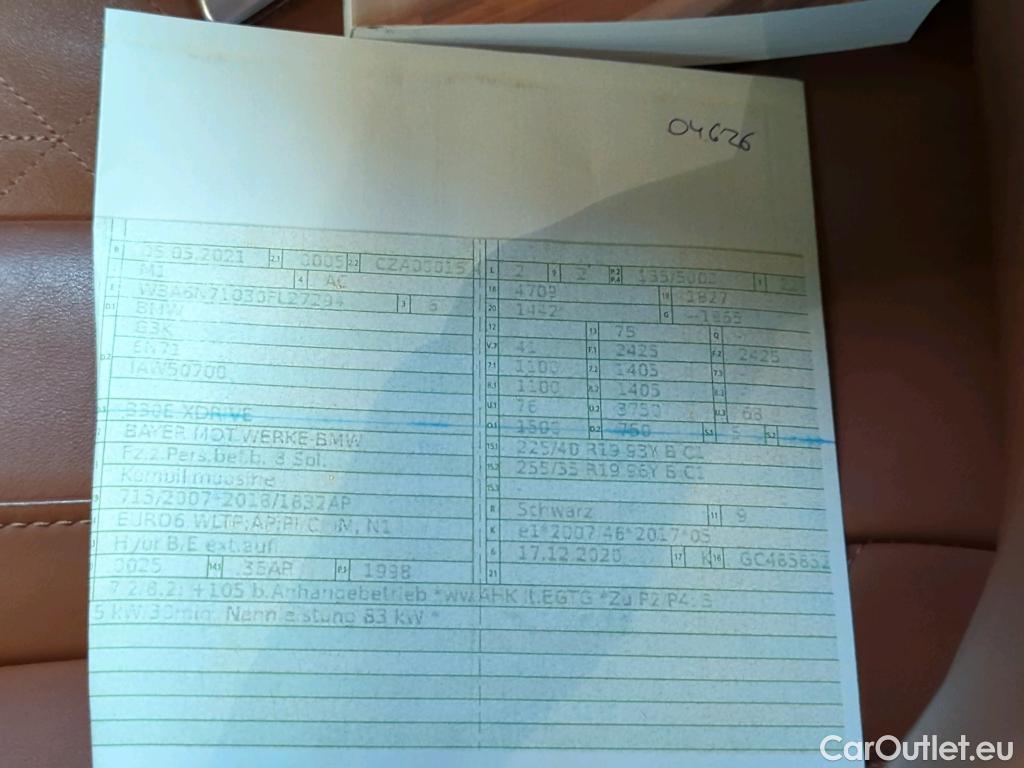 04626
B 05.05.2021 2.1 0005 2.2 CZA00015 L 2 9 2 P.2 P.4 135/5002 T
J M1 4 AC 18 4709 19 1827
E 3 6 20 1442 G 1865
D.1 BMW 12 13 75 Q
G3K V.7 41 F.1 2425 F.2 2425
D.2 6N71 7.1 1100 7.2 1405 7.3 -
IAW50700 8.1 1100 8.2 1405 8.3 -
U.1 76 U.2 3750 U.3 68
D.3 XDRIVE O.1 1500 O.2 750 S.1 5 S.2
2 BAYER.MOT.WERKE-BMW 15.1 225/40 R19 93Y B C1
5 Fz.z.Pers.bef.b. 8 Spl. 15.2 255/35 R19 96Y B C1
Kombilimousine 15.3 -
715/2007*2018/1832AP R Schwarz 11 9
EURO6 WLTP;AP;PI/CI; M, N1 K e1*2007/46*2017*05
Hybr.B/E ext.aufl 6 17.12.2020 17 K 16
0025 14.1 36AP P.1 1998 21
7.2/8.2: +105 b.Anhängebetrieb *ww.AHK lt.EGTG *Zu P.2/P.4:
5 kW/30min. Nennleistung 83 kW *
CarOutlet.eu